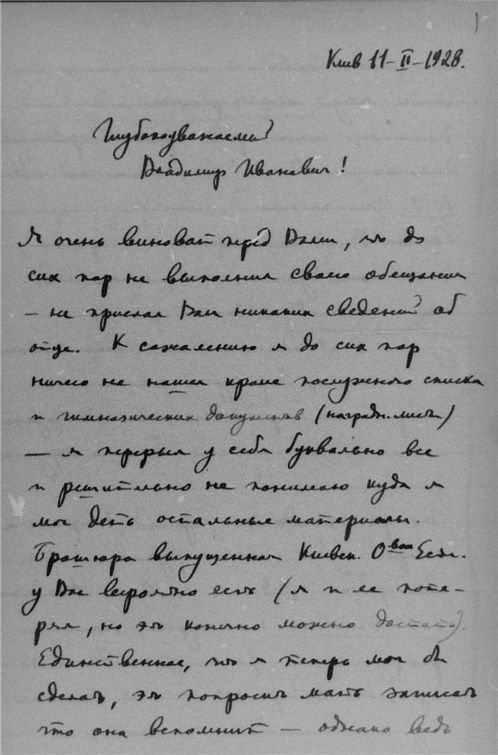 1
Киев 11-II-1928.
Глубокоуважаемый
Владимир Иванович!
Я очень виноват перед Вами, что до
сих пор не выполнил своего обещания
- не прислал Вам никаких сведений об
отце. К сожалению я до сих пор
ничего не нашел кроме послужного списка
и гимназических документов (наградн. листы)
— я перерыл у себя буквально все
и решительно не понимаю куда я
мог деть остальные материалы.
Брошюра выпущенная Киевск. О-вом Есте.
у Вас вероятно есть (я и ее поте-
рял, но эту конечно можно достать).
Единственное, что я теперь мог бы
сделать, это попросить мать записать
что она вспомнит — однако ведь